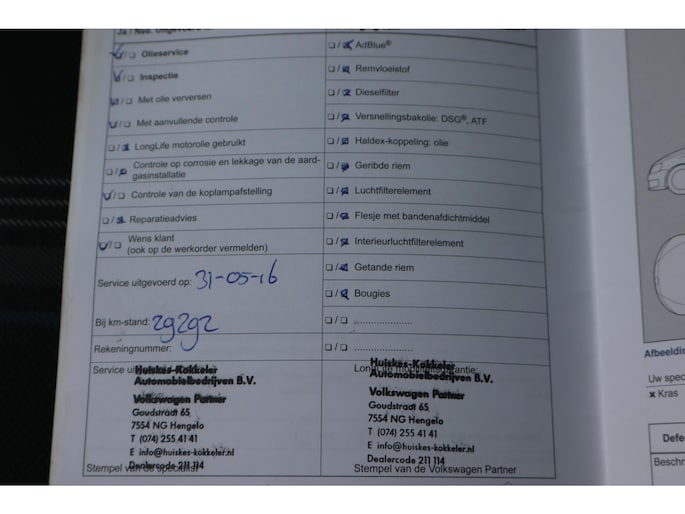 Ja / Nee.
Olieservice
Inspectie
Met olie verversen
Met aanvullende controle
LongLife motorolie gebruikt
Controle op corrosie en lekkage van de aard-
gasinstallatie
Controle van de koplampafstelling
Reparatieadvies
Wens klant
(ook op de werkorder vermelden)
Service uitgevoerd op: 31-05-16
Bij km-stand: 29292
Rekeningnummer:
Service
Huiskes-Kokkeler
Automobielbedrijven B.V.
Volkswagen Partner
Goudstraat 65
7554 NG Hengelo
T (074) 255 41 41
E info@huiskes-kokkeler.nl
Dealercode 211 114
Stempel van de specialist
AdBlue®
Remvloeistof
Dieselfilter
Versnellingsbakolie: DSG®, ATF
Haldex-koppeling: olie
Geribde riem
Luchtfilterelement
Flesje met bandenafdichtmiddel
Interieurluchtfilterelement
Getande riem
Bougies
....................
....................
Huiskes-Kokkeler
Automobielbedrijven B.V.
Volkswagen Partner
Goudstraat 65
7554 NG Hengelo
T (074) 255 41 41
E info@huiskes-kokkeler.nl
Dealercode 211 114
Stempel van de Volkswagen Partner
Uw
x Kras